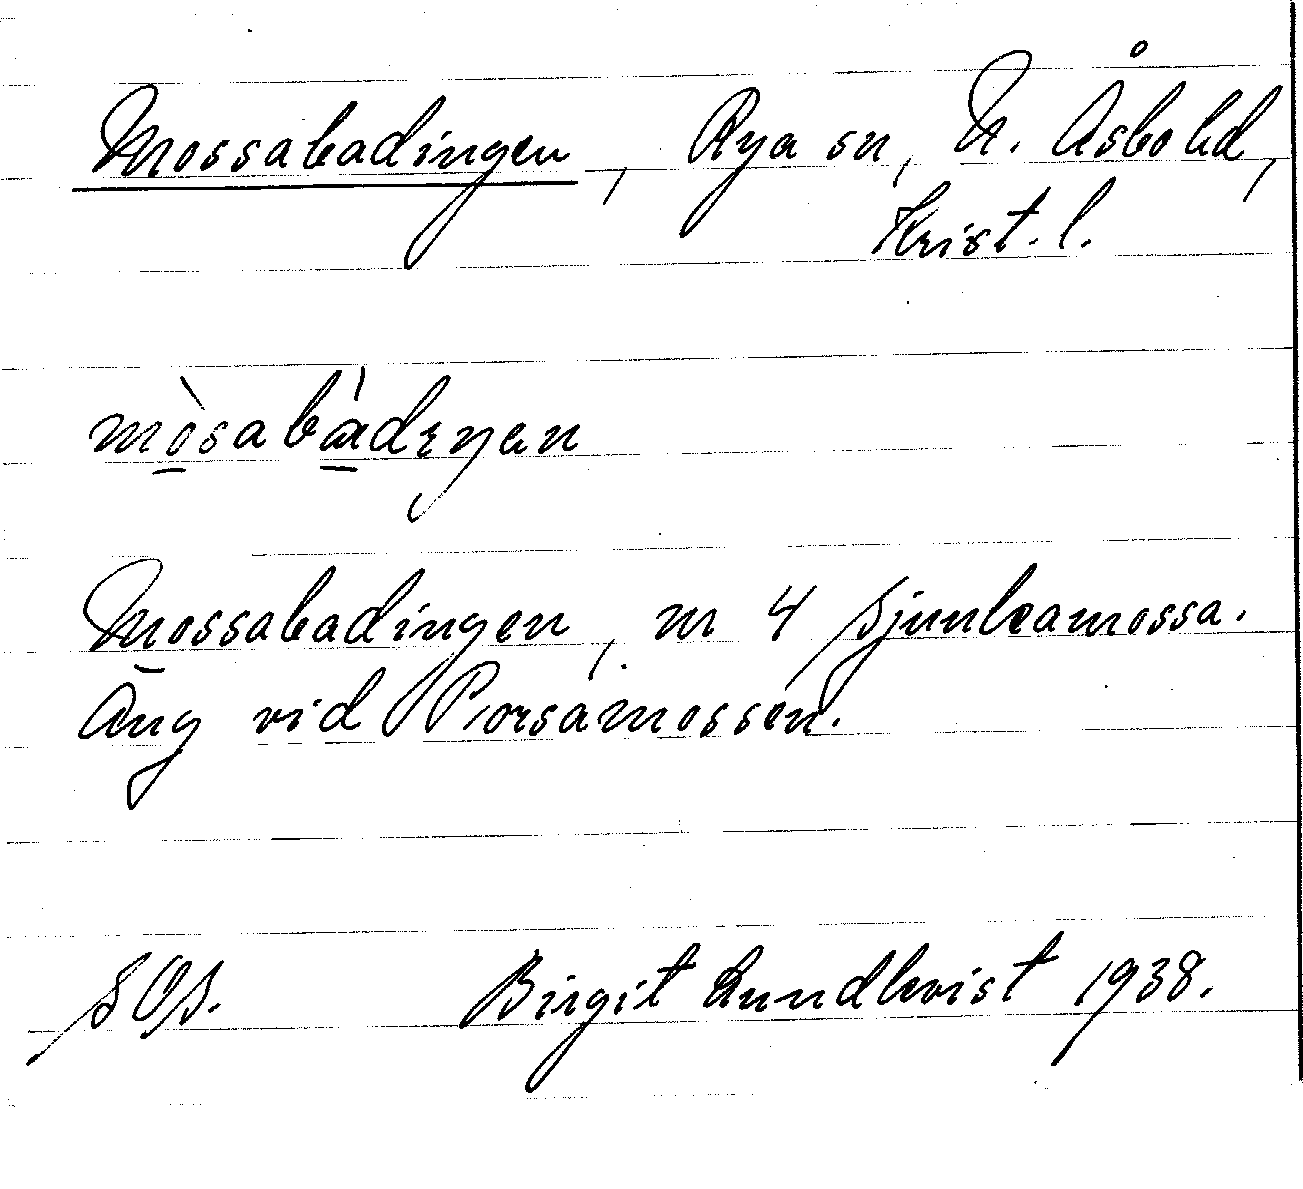 Mossabadingen, Rya sn, N. Åsbo hd,
Krist. l.
mòsabàdɪŋen
Mossabadingen, nr 4 Sjunkamossa.
Äng vid Porsamossen.
SOS. Birgit Lundkvist 1938.